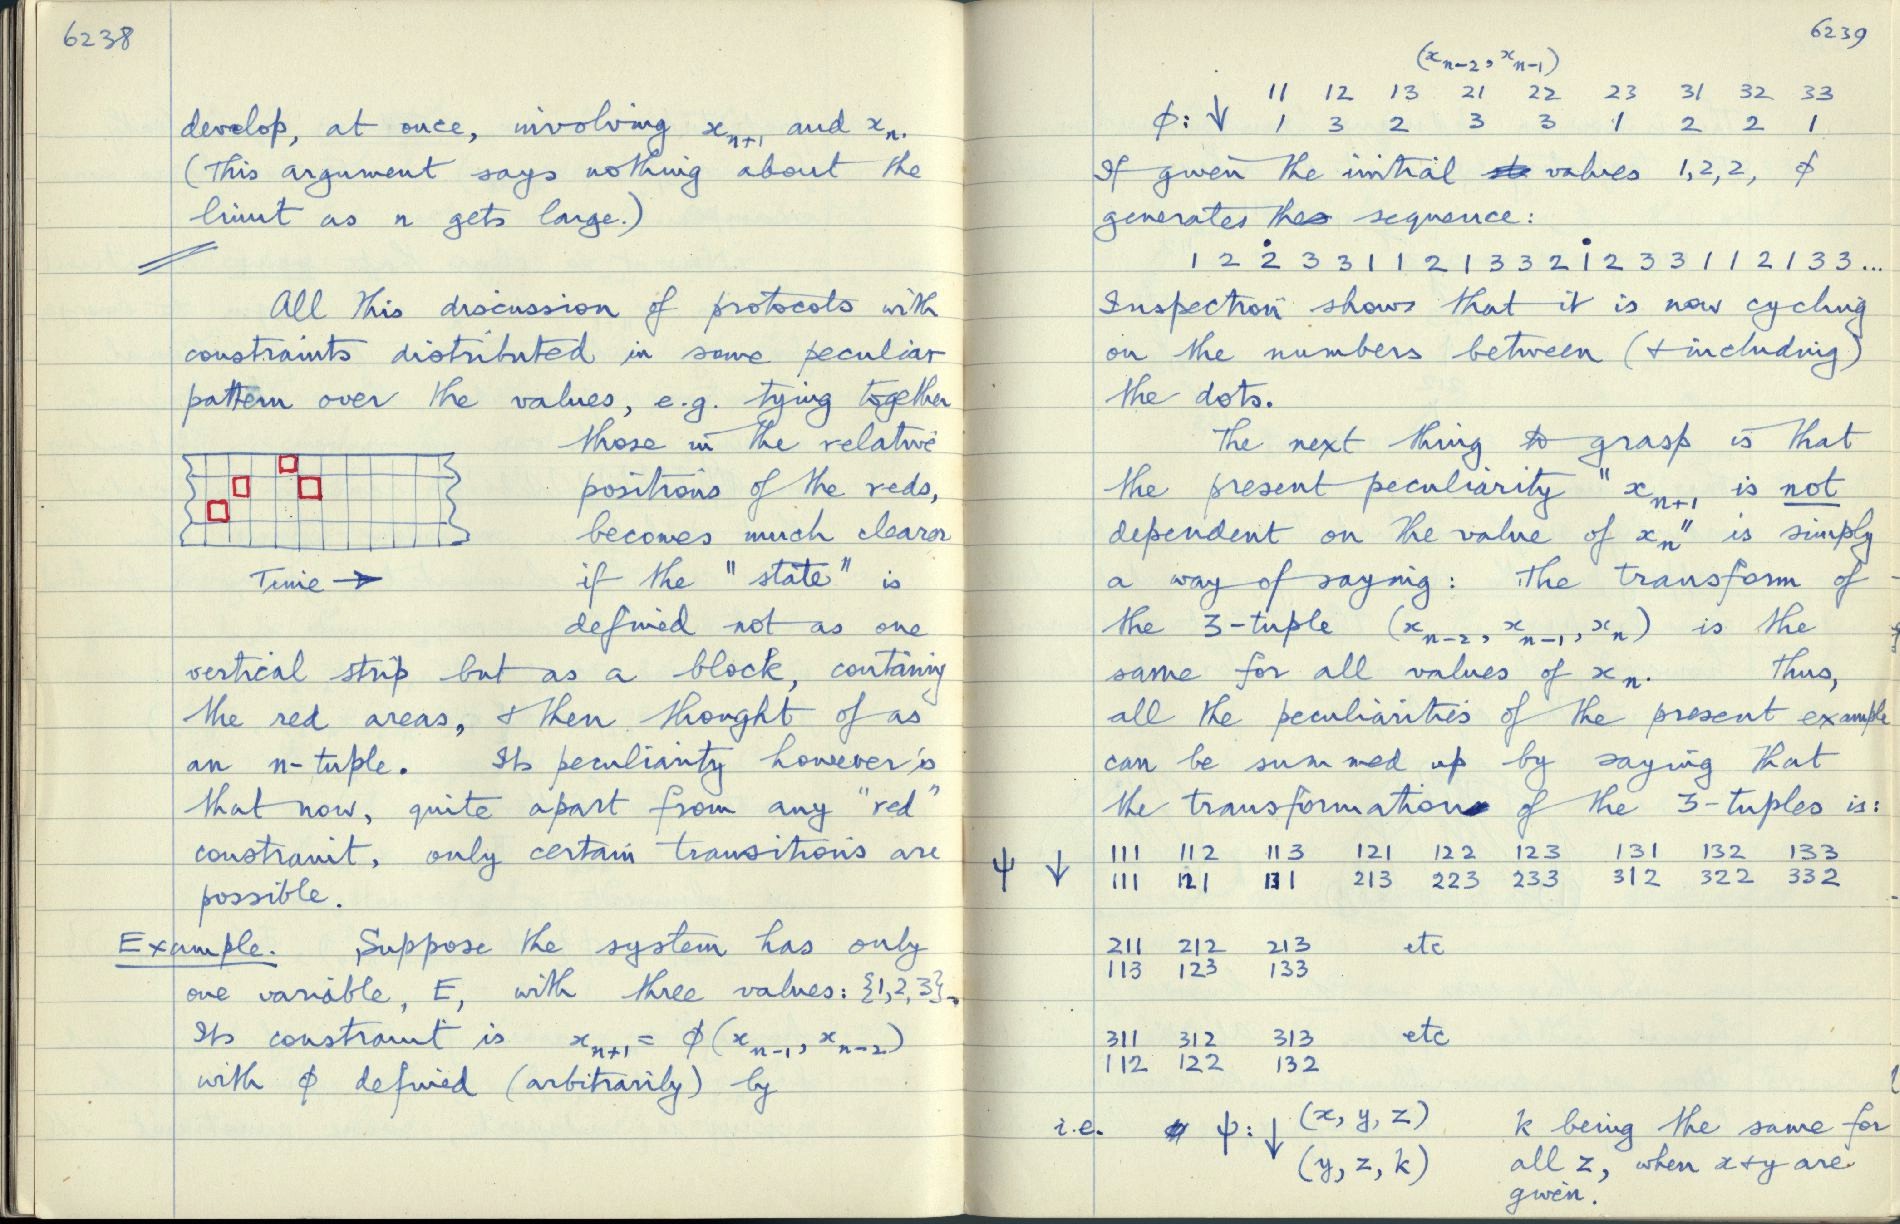 6238
develop, at once, involving xₙ₊₁ and xₙ.
(This argument says nothing about the
limit as n gets large.)
All this discussion of protocols with
constraints distributed in some peculiar
pattern over the values, e.g. tying together
those in the relative
positions of the reds,
becomes much clearer
if the "state" is
Time →
defined not as one
vertical strip but as a block, containing
the red areas, & then thought of as
an n-tuple. Its peculiarity however is
that now, quite apart from any "red"
constraint, only certain transitions are
possible.
Example. Suppose the system has only
one variable, E, with three values: {1,2,3}.
Its constraint is xₙ₊₁ = ϕ(xₙ₋₁, xₙ₋₂)
with ϕ defined (arbitrarily) by
6239
(xₙ₋₂, xₙ₋₁)
11 12 13 21 22 23 31 32 33
ϕ: ↓ 1 3 2 3 3 1 2 2 1
If given the initial values 1,2,2, ϕ
generates the sequence:
1 2 2̇ 3 3 1 1 2 1 3 3 2 1̇ 2 3 3 1 1 2 1 3 3 ...
Inspection shows that it is now cycling
on the numbers between (& including)
the dots.
The next thing to grasp is that
the present peculiarity "xₙ₊₁ is not
dependent on the value of xₙ" is simply
a way of saying: The transform of
the 3-tuple (xₙ₋₂, xₙ₋₁, xₙ) is the
same for all values of xₙ. Thus,
all the peculiarities of the present example
can be summed up by saying that
the transformation of the 3-tuples is:
ψ ↓ 111 112 113 121 122 123 131 132 133
111 121 131 213 223 233 312 322 332
211 212 213 etc
113 123 133
311 312 313 etc
112 122 132
i.e. ψ: ↓ (x, y, z) k being the same for
(y, z, k) all z, when x & y are
given.